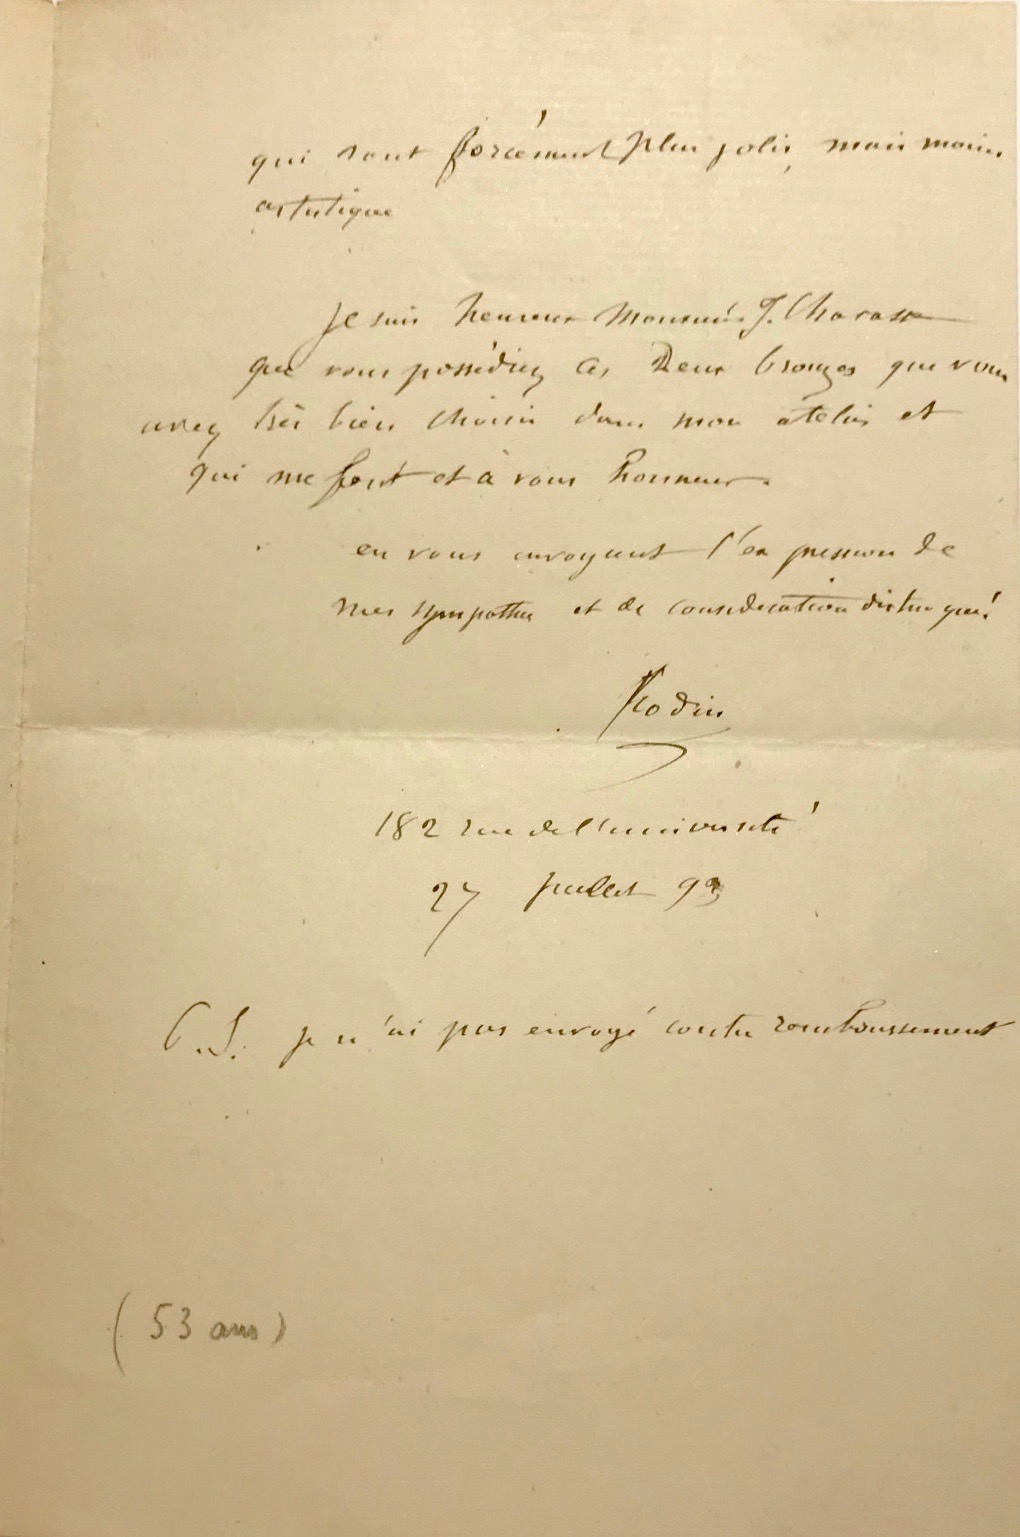 qui sont forcément plus jolis, mais moins
artistique
je suis heureux Monsieur J. Charasse
que vous possédiez ces Deux bronzes que vous
avez très bien choisis dans mon atelier et
qui me font et à vous honneur.
en vous envoyant l'expression de
mes sympathies et de considération distingué
Rodin
182 rue de l'université
27 juillet 93
P.S. je n'ai pas envoyé contre remboursement
(53 ans)